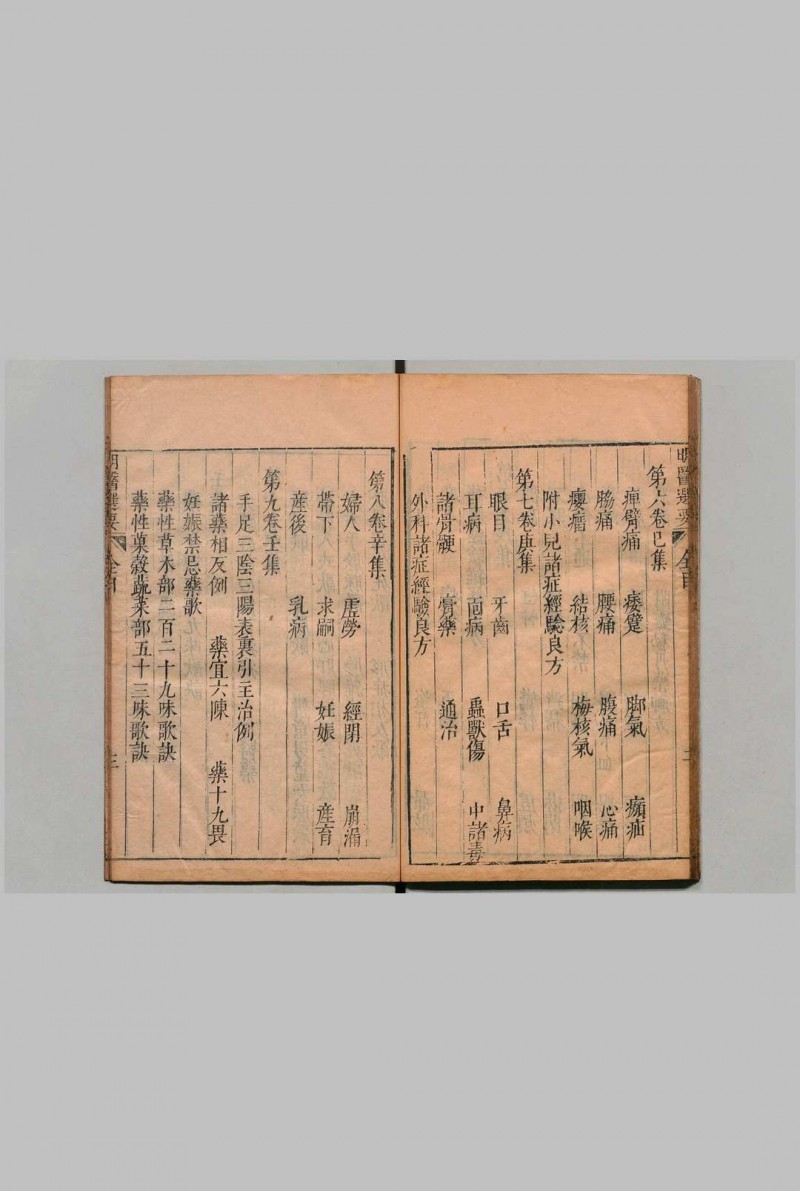 明醫選要 全目 二
第六卷己集
痺臂痛 痿躄 脚氣 㿗疝
脇痛 腰痛 腹痛 心痛
癭瘤 結核 梅核氣 咽喉
附小兒諸症經驗良方
第七卷庚集
眼目 牙齒 口舌 鼻病
耳病 面病 蟲獸傷 中諸毒
諸骨硬 膏藥 通治
外科諸症經驗良方
第八卷辛集
婦人 虛勞 經閉 崩漏
帶下 求嗣 妊娠 產育
產後 乳病
第九卷壬集
手足三陰三陽表裏引主治例
諸藥相反例 藥宜六陳 藥十九畏
妊娠禁忌藥歌
藥性草木部二百二十九味歌訣
藥性菓穀蔬菜部五十三味歌訣
明醫選要 全目 三